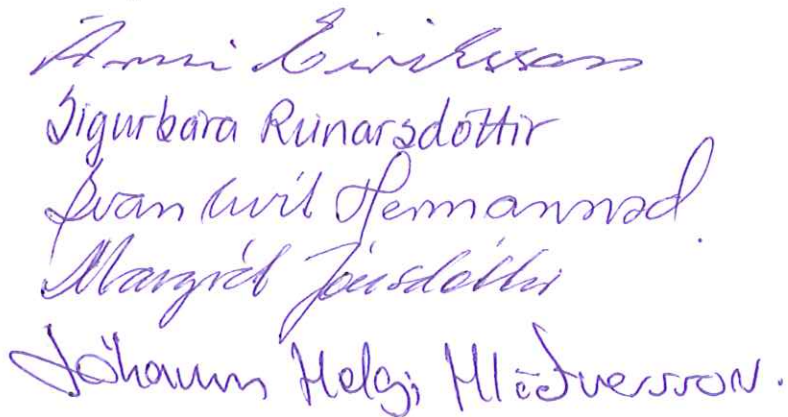 Árni Eiríksson
Sigurbára Rúnarsdóttir
Svanhvít Hermannsd.
Margrét Jónsdóttir
Jóhann Helgi Hlöðversson.